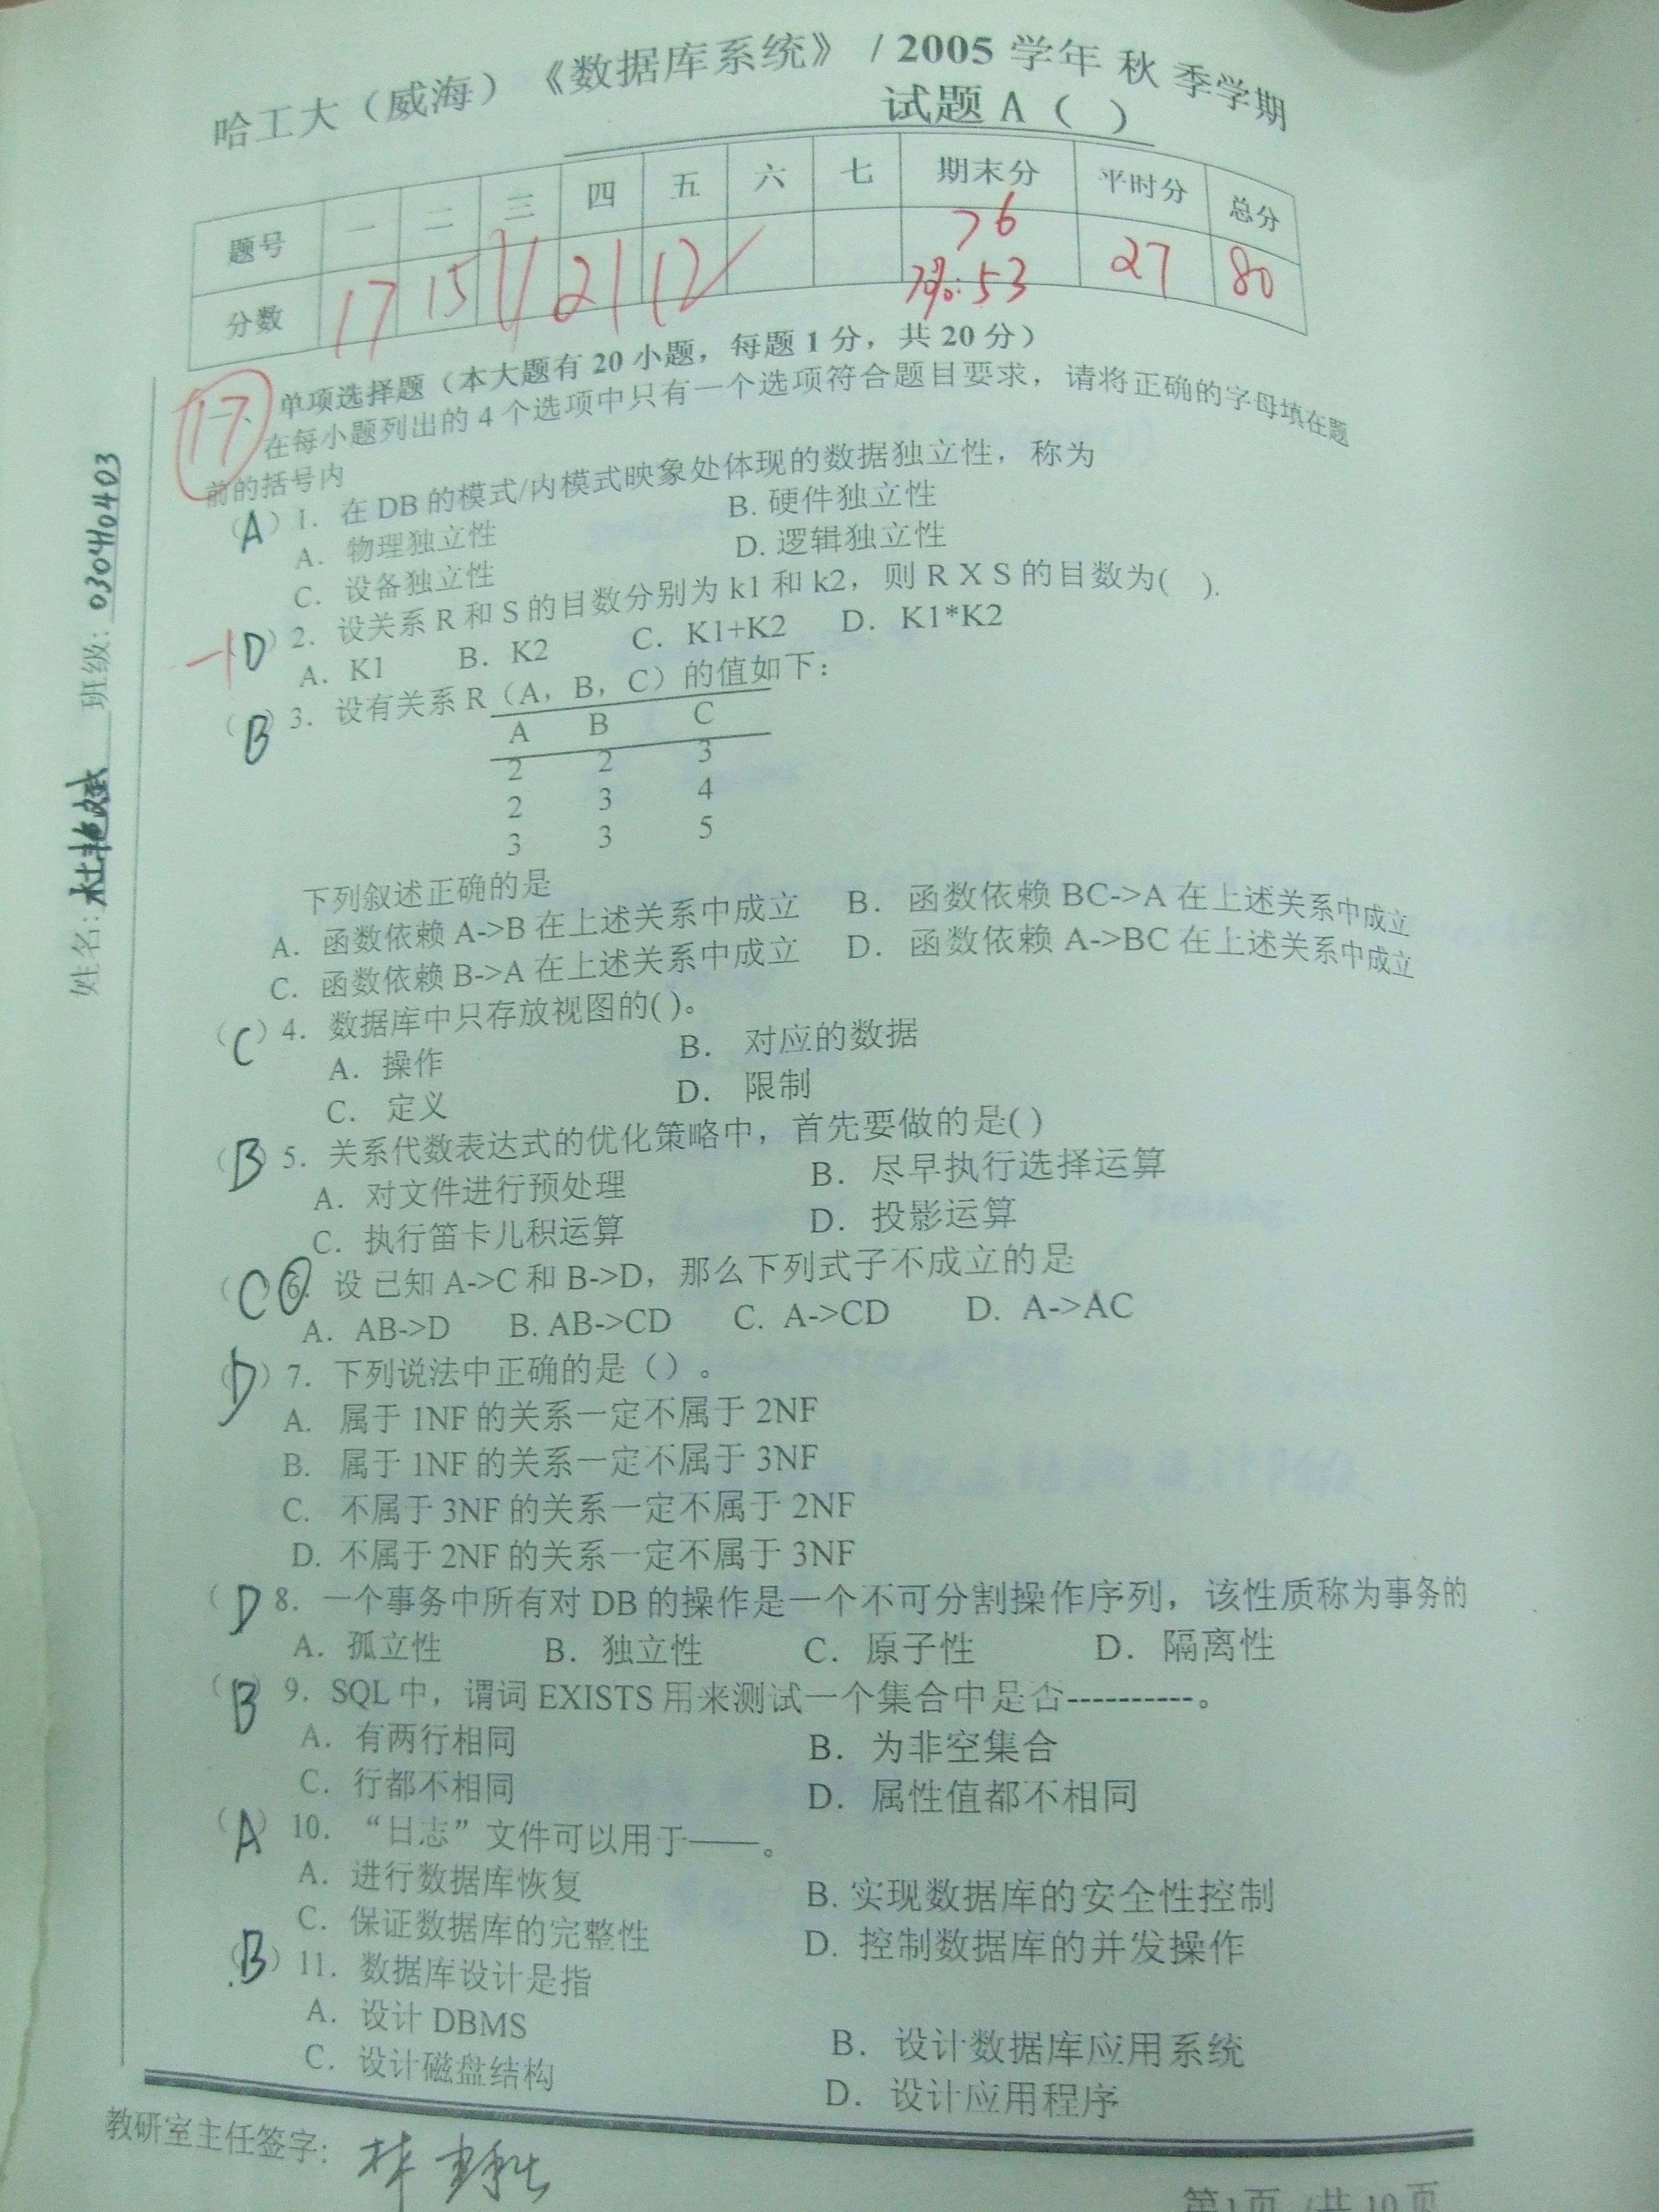 哈工大（威海）《数据库系统》 / 2005 学年 秋 季学期
试题 A（ ）
题号 一 二 三 四 五 六 七 期末分 平时分 总分
76
分数 17 15 11 21 12 70%:53 27 80
17
一、 单项选择题（本大题有 20 小题，每题 1 分，共 20 分）
在每小题列出的 4 个选项中只有一个选项符合题目要求，请将正确的字母填在题
前的括号内
（A）1． 在 DB 的模式/内模式映象处体现的数据独立性，称为
A． 物理独立性 B. 硬件独立性
C． 设备独立性 D. 逻辑独立性
-1（D）2．设关系 R 和 S 的目数分别为 k1 和 k2，则 R X S 的目数为( ).
A．K1 B．K2 C．K1+K2 D．K1*K2
（B）3．设有关系 R（A，B，C）的值如下：
A B C
2 2 3
2 3 4
3 3 5
下列叙述正确的是
A．函数依赖 A->B 在上述关系中成立 B．函数依赖 BC->A 在上述关系中成立
C．函数依赖 B->A 在上述关系中成立 D．函数依赖 A->BC 在上述关系中成立
（C）4．数据库中只存放视图的( )。
A．操作 B． 对应的数据
C． 定义 D． 限制
（B）5．关系代数表达式的优化策略中，首先要做的是( )
A．对文件进行预处理 B．尽早执行选择运算
C．执行笛卡儿积运算 D．投影运算
（C）6．设 已知 A->C 和 B->D，那么下列式子不成立的是
A．AB->D B. AB->CD C. A->CD D. A->AC
（D）7．下列说法中正确的是（）。
A. 属于 1NF 的关系一定不属于 2NF
B. 属于 1NF 的关系一定不属于 3NF
C. 不属于 3NF 的关系一定不属于 2NF
D. 不属于 2NF 的关系一定不属于 3NF
（D 8．一个事务中所有对 DB 的操作是一个不可分割操作序列，该性质称为事务的
A．孤立性 B．独立性 C．原子性 D．隔离性
（B）9．SQL 中，谓词 EXISTS 用来测试一个集合中是否----------。
A．有两行相同 B．为非空集合
C．行都不相同 D．属性值都不相同
（A）10．“日志”文件可以用于——。
A．进行数据库恢复 B. 实现数据库的安全性控制
C．保证数据库的完整性 D. 控制数据库的并发操作
（B）11．数据库设计是指
A．设计 DBMS B．设计数据库应用系统
C．设计磁盘结构 D．设计应用程序
教研室主任签字：
第 1 页 /共 10 页
姓名： 班级：030410403